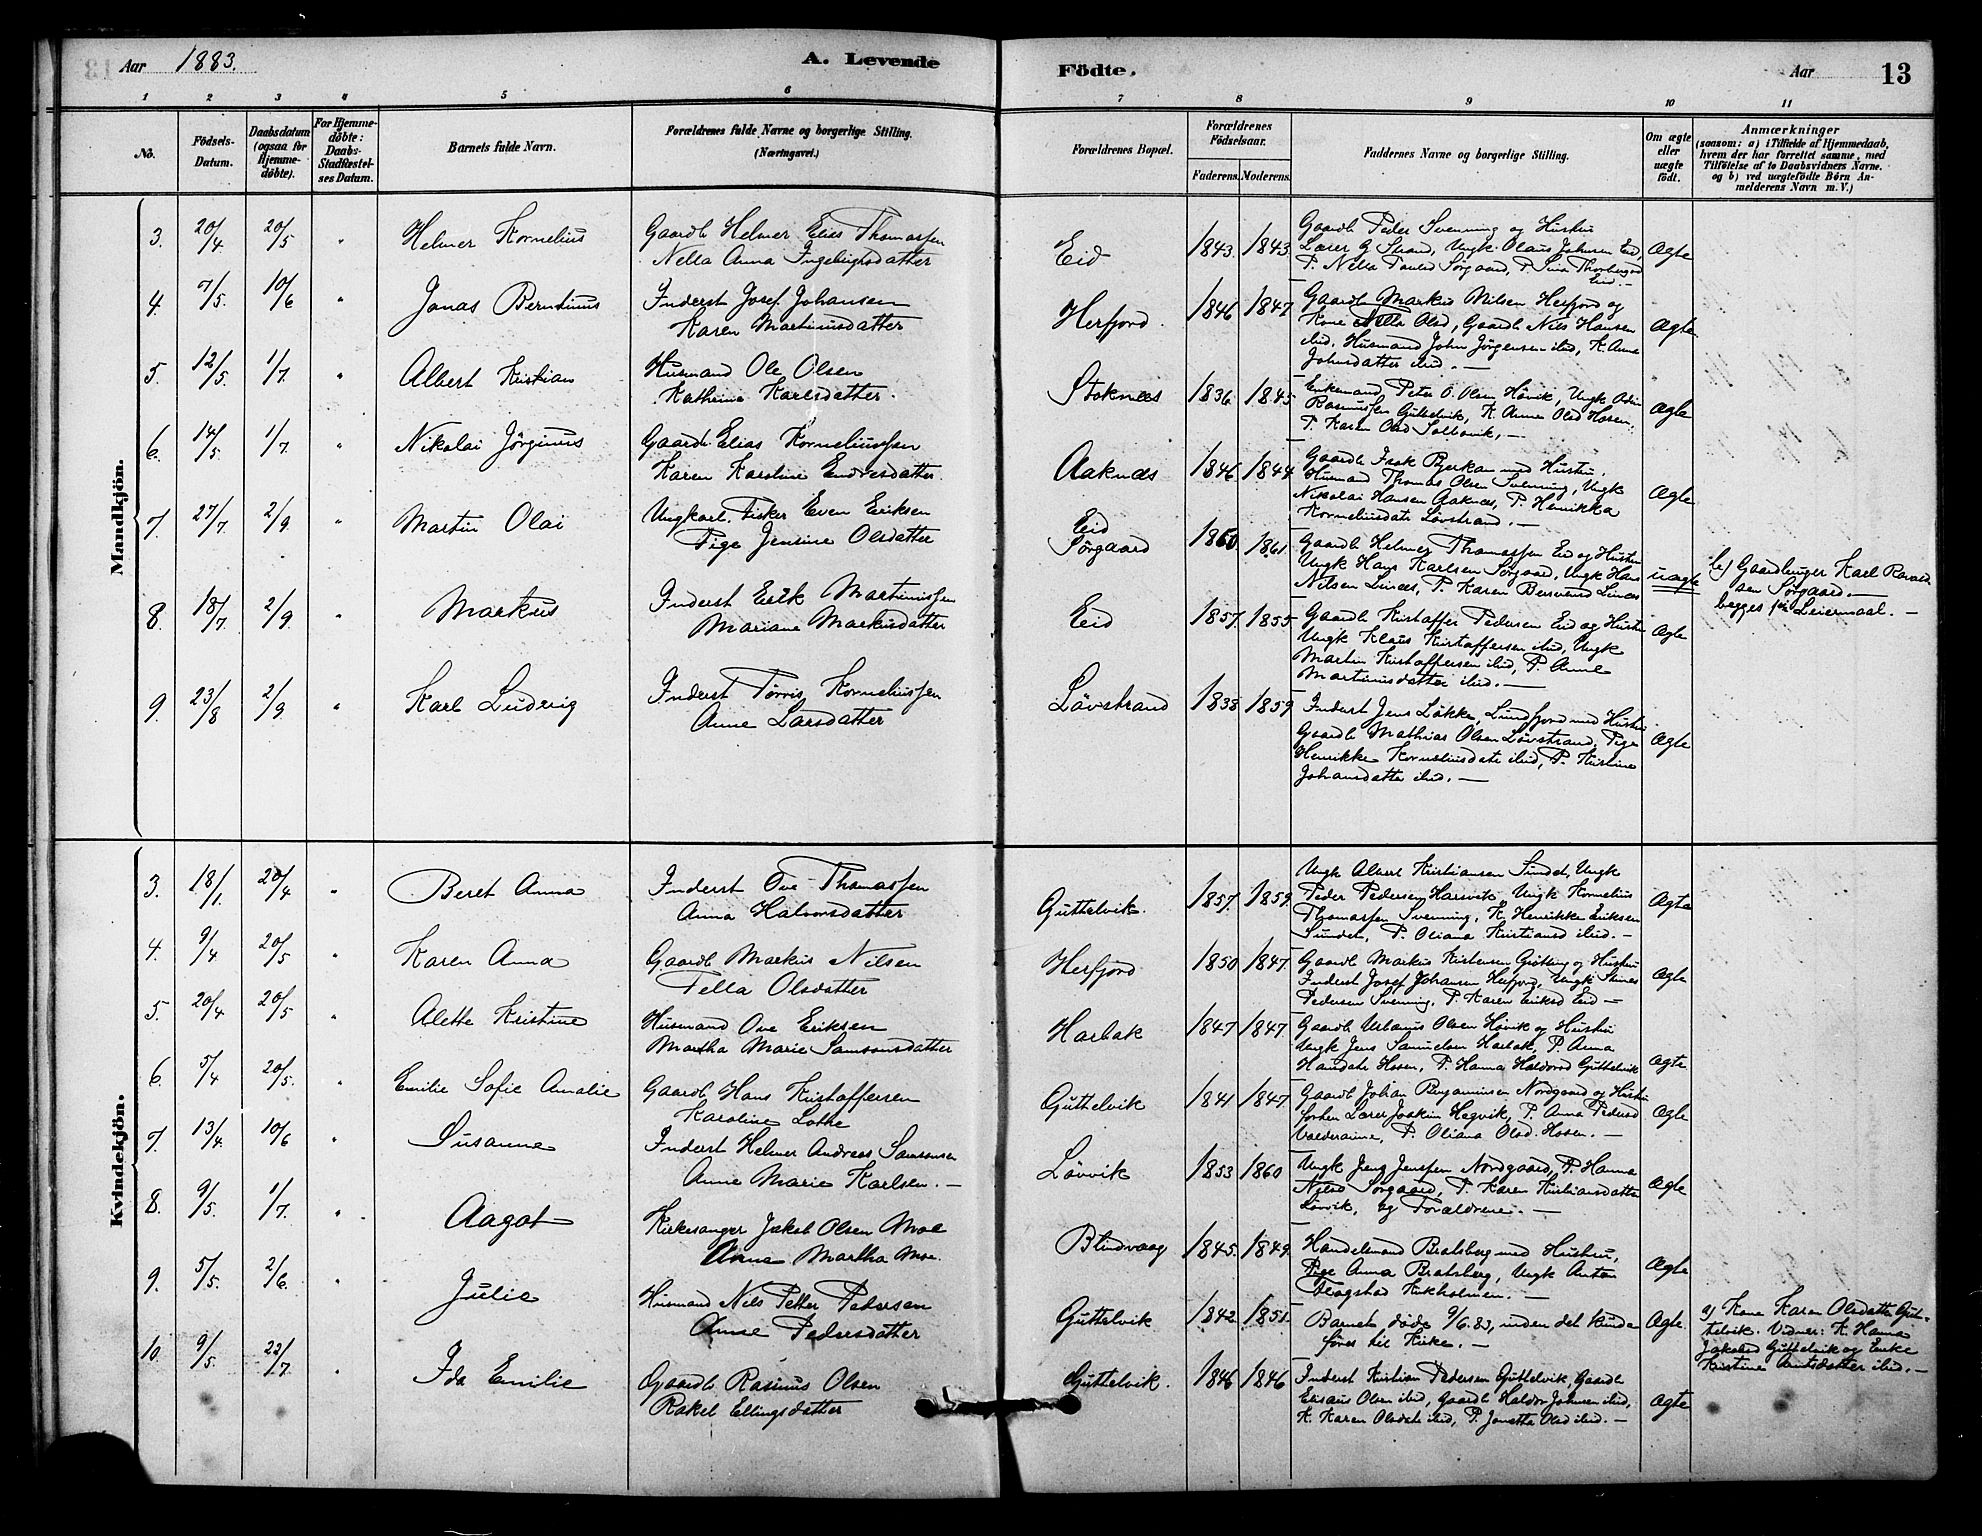 Aar 1883.
A. Levende
Födte.
Aar
13
1 2 3 4 5 6 7 8 9 10 11
No.
Födsels-
Datum.
Daabsdatum
(ogsaa for
Hjemme-
döbte).
For Hjemme-
döbte:
Daabs-
Stadfæstel-
ses Datum.
Barnets fulde Navn.
Forældrenes fulde Navne og borgerlige Stilling.
(Næringsvei.)
Forældrenes Bopæl.
Forældrenes
Födselsaar.
Faderens. Moderens.
Faddernes Navne og borgerlige Stilling.
Om ægte
eller
uægte
födt.
Anmærkninger
(saasom: a) i Tilfælde af Hjemmedaab,
hvem der har forrettet samme, med
Tilföielse af to Daabsvidners Navne.
og b) ved uægtefödte Börn An-
melderens Navn m. V.)
Mandkjön.
3. 20/4 20/5 " Helmer Kornelius
Gaardb Helmer Elias Thomassen
Nella Anna Ingebrigtsdatter
Eid 1843. 1843.
Gaardb Peder Svenning og Hustru
Lærer G Strand, Ungk. Olaus Johnsen Eid,
P. Nella Paulsd Sørgaard, P. Sina Thorbergsd
Eid. —
Ægte
4. 7/5. 10/6 " Jonas Berntinus
Inderst Josef Johansen
Karen Martinusdatter
Herfjord. 1846 1847
Gaardb Markus Nilsen Herfjord og
Kone Pella Olsd, Gaardb Nils Hansen
ibid, Husmand John Jörgensen ibid, K. Anna
Johnsdatter ibid. —
Ægte
5. 12/5. 1/7. " Albert Kristian
Husmand Ole Olsen
Kathrine Karlsdatter.
Stoknæs 1836 1845.
Enkemand Peter O. Olsen Hövik, Ungk
Rasmussen Guttelvik, K. Anne Olsd Hosen,
P. Karen Olsd
Ægte
6. 14/5. 1/7. " Nikolai Jörginus
Gaardb Elias Korneliussen
Karen Karoline Endresdatter.
Aaknæs 1846 1844
Gaardb Isak Bjerkan med Hustru.
Husmand Thomas Olsen Svenning, Ungk
Nikolai Hansen Aaknæs, P. Henrikka
Korneliusdatr Lövstrand. —
Ægte
7. 27/7. 2/9. " Martin Olai
Ungkarl. Fisker Even Eriksen
Pige Jensine Olsdatter
Eid
Sörgaard
1860 1861.
Gaardb Helmer Thomassen Eid og Hustru
Ungk Hans Karlsen Sörgaard, Ungk Hans
Nilsen Linæs, P. Karen Linæs
uægte
b.) Gaardbruger Karl
sen Sörgaard. —
begges 1ste Leiermaal. —
8. 18/7 2/9. " Markus
Inderst Erik Martinussen
Mariane Markusdatter
Eid 1857. 1855
Gaardb Kristoffer Pedersen Eid og Hustru
Ungk Klaus Kristoffersen ibid, Ungk
Martin Kristoffersen ibid, P. Anne
Martinusdatter ibid. —
Ægte
9. 23/8 2/9. " Karl Ludvig
Inderst Törris Korneliussen
Anne Larsdatter
Lövstrand 1838 1859
Inderst Jens Lökke, Lundfjord med Hustru
Gaardb Mathias Olsen Lövstrand, Pige
Henrikke Korneliusdatr ibid, P. Kristine
Johansdatter ibid. —
Ægte
Kvindekjön.
3. 18/1. 20/4 " Beret Anna
Inderst Ove Thomassen
Anna Halvorsdatter
Guttelvik. 1857. 1859.
Ungk Albert Kristiansen Sundet, Ungk
Peder Pedersen Harsvik, Ungk Kornelius
Thomassen Svenning, K. Henrikke Eriksen
Sundet, P. Oliana Kristiansd ibid. —
Ægte
4. 9/4 20/5 " Karen Anna
Gaardb Markus Nilsen
Pella Olsdatter
Herfjord 1850 1847.
Gaardb Markus Kristensen og Hustru
Inderst Josef Johansen Herfjord, Ungk
Pedersen Svenning, P. Karen Eriksd Eid —
Ægte
5. 20/4 20/5 " Alette Kristine
Husmand Ove Eriksen
Martha Marie Samsonsdatter
Harbak 1847 1847.
Gaardb Urbanus Olsen Hövik og Hustru
Ungk Jens Samuelsen Harbak, P. Anna
Hansdatr Hosen, P. Hanna Haldorsd Guttelvik
Ægte
6. 5/4 20/5. " Emilie Sofie Amalie
Gaardb Hans Kristoffersen
Karoline Lothe
Guttelvik 1841 1847.
Gaardb Johan Benjaminsen Nordgaard og Hustru
Lærer Joakim Hegvik, P. Anna Pedersd
Valderanne, P. Oliana Olsd. Hosen. —
Ægte
7. 13/4 10/6 " Susanna
Inderst Helmer Andreas Samsonsen
Anne Marie Karlsen. —
Lövvik 1853 1860
Ungk Jenssen Nordgaard, P. Hanna
Sörgaard, P. Karen Kristiansdatter
Lövvik, og Forældrene. —
Ægte
8. 9/5. 1/7. " Aagot
Kirkesanger Jakob Olsen Moe
Anna Martha Moe.
Blindvaag 1845. 1849.
Handelsmand Bratsberg med Hustru,
Pige Anna Bratsberg, Ungk Anton
Kirkholmen. —
Ægte
9. 5/5. 2/6. " Julie
Husmand Nils Petter Pedersen
Anne Pedersdatter
Guttelvik 1842 1851.
Barnet döde 9/6.83, inden det kunde
föres til Kirke. —
Ægte.
a) Kone Karen Olsdatter Gut-
telvik. Vidner: K. Hanna
Jakobsd Guttelvik og Enke
Kristine Arntsdatter ibid. —
10. 9/5. 22/7 " Ida Emilie
Gaardb Rasmus Olsen
Rakel Ellingsdatter
Guttelvik. 1846 1846
Inderst Kristian Pedersen Guttelvik, Gaardb
Elisæus Olsen ibid, Gaardb Haldor Johnsen ibid,
K. Karen Olsdatr ibid, P. Jonetta Olsd ibid. —
Ægte